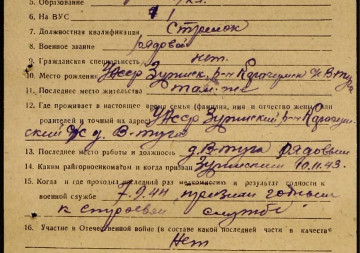 5. Образование
6. На ВУС 1
7. Должностная квалификация Стрелок
8. Военное звание рядовой
9. Гражданская специальность нет
10. Место рождения УАССР р-н
11. Последнее место жительства там-же
12. Где проживает в настоящее время семья (фамилия, имя и отчество жены или
родителей и точный их адрес) УАССР р-н
ский с/с д. В-туга
13. Последнее место работы и должность д. В-туга рядовым
14. Каким райгорвоенкоматом и когда призван 10.11.43.
15. Когда и где проходил последний раз медкомиссию и результат годности к
военной службе 7.9.44 признан годным
к строевой службе
16. Участие в Отечественной войне (в составе какой последней части в качестве
Нет